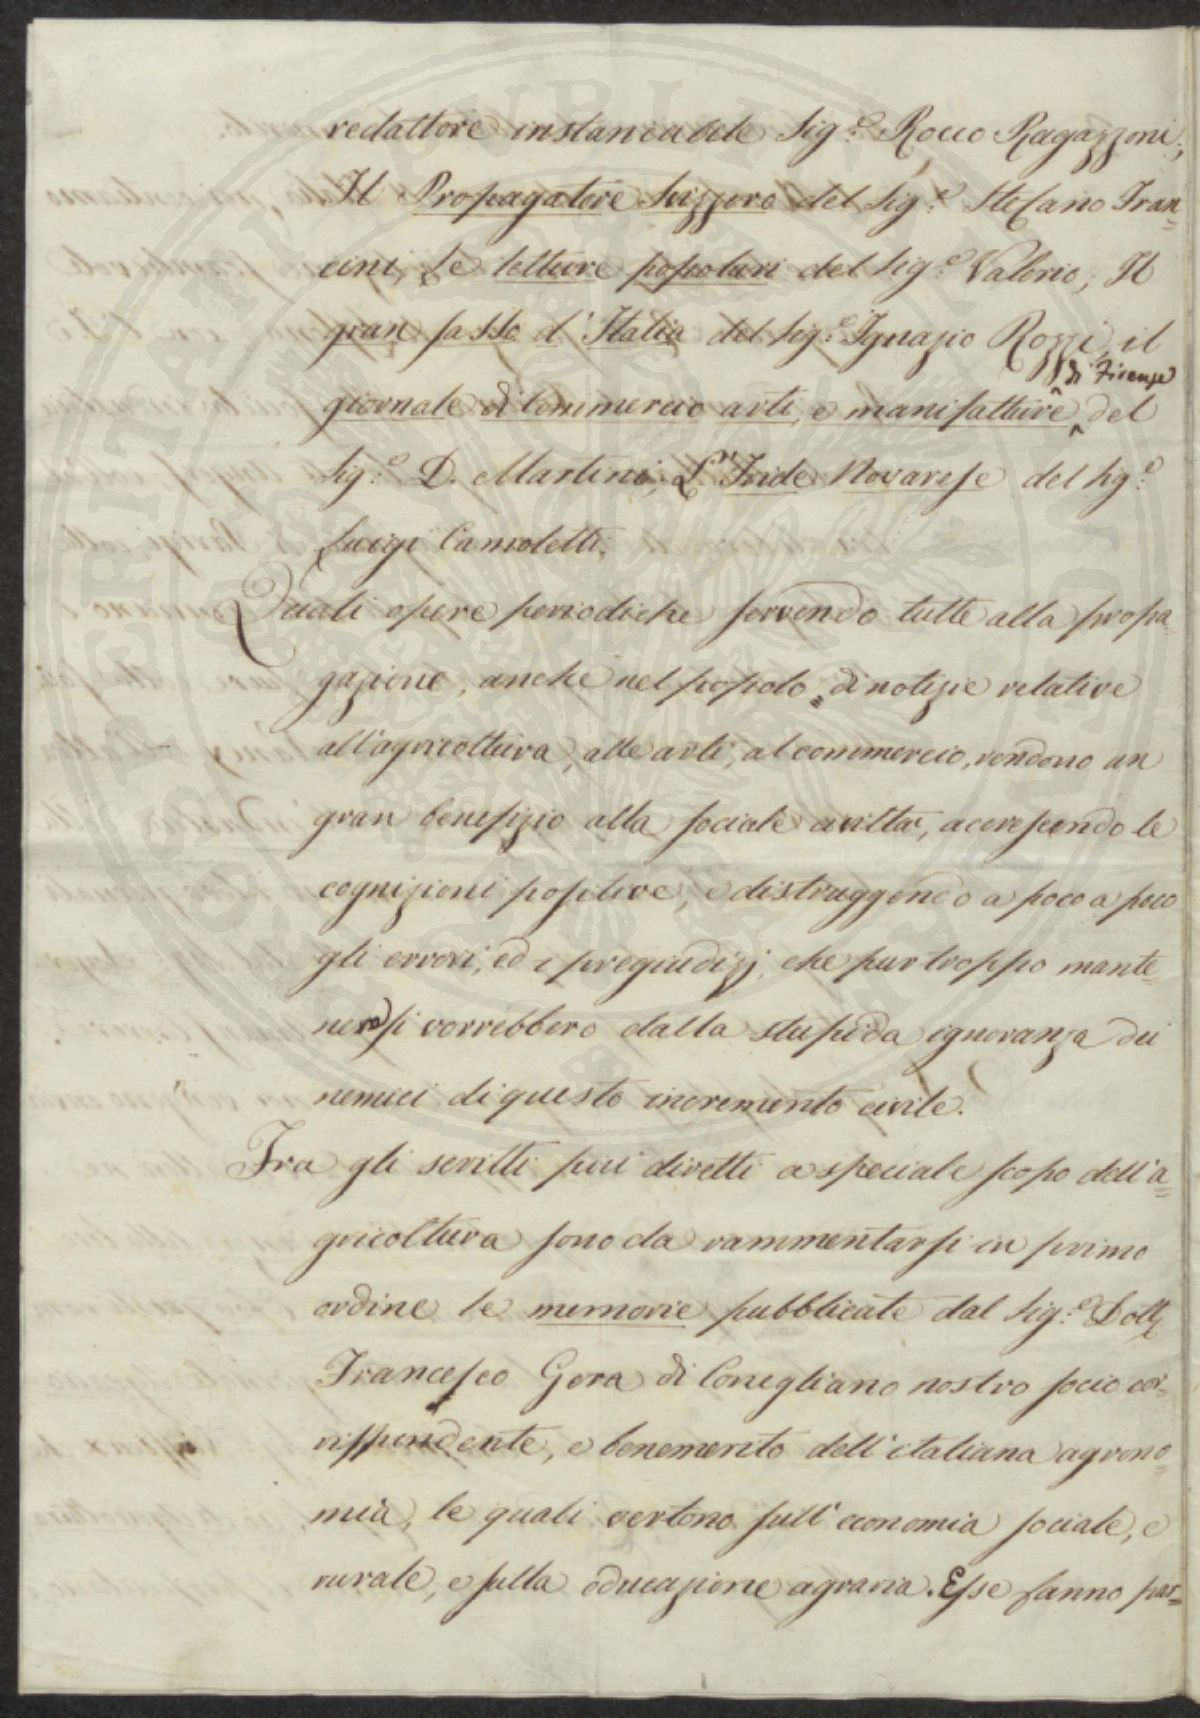 redattore instancabile Sig.e Rocco Ragazzoni;
Il Propagatore Svizzero del Sig.e Stefano Fran=
cini, Le letture popolari del Sig.e Valerio, Il
gran sasso d'Italia del Sig.e Ignazio Rozzi, il
giornale di Commercio arti, e manifatture di Firenze del
Sig.e D. Martini, L'Iride Novarese del Sig.e
Luigi Camoletti.
Quali opere periodiche servendo tutte alla propa=
gazione, anche nel popolo, di notizie relative
all'agricoltura, alle arti, al commercio, rendono un
gran benefizio alla sociale civiltà, accrescendo le
cognizioni positive, e distruggendo a poco a poco
gli errori, ed i pregiudizj, che pur troppo mante=
nersi vorrebbero dalla stupida ignoranza dei
nemici di questo incremento civile.
Fra gli scritti più diretti a speciale scopo dell'a=
gricoltura sono da rammentarsi in primo
ordine le memorie pubblicate dal Sig.e Dott.
Francesco Gera di Conegliano nostro socio cor=
rispondente, e benemerito dell'italiana agrono=
mia, le quali vertono sull'economia sociale, e
rurale, e sulla educazione agraria. Esse fanno par=